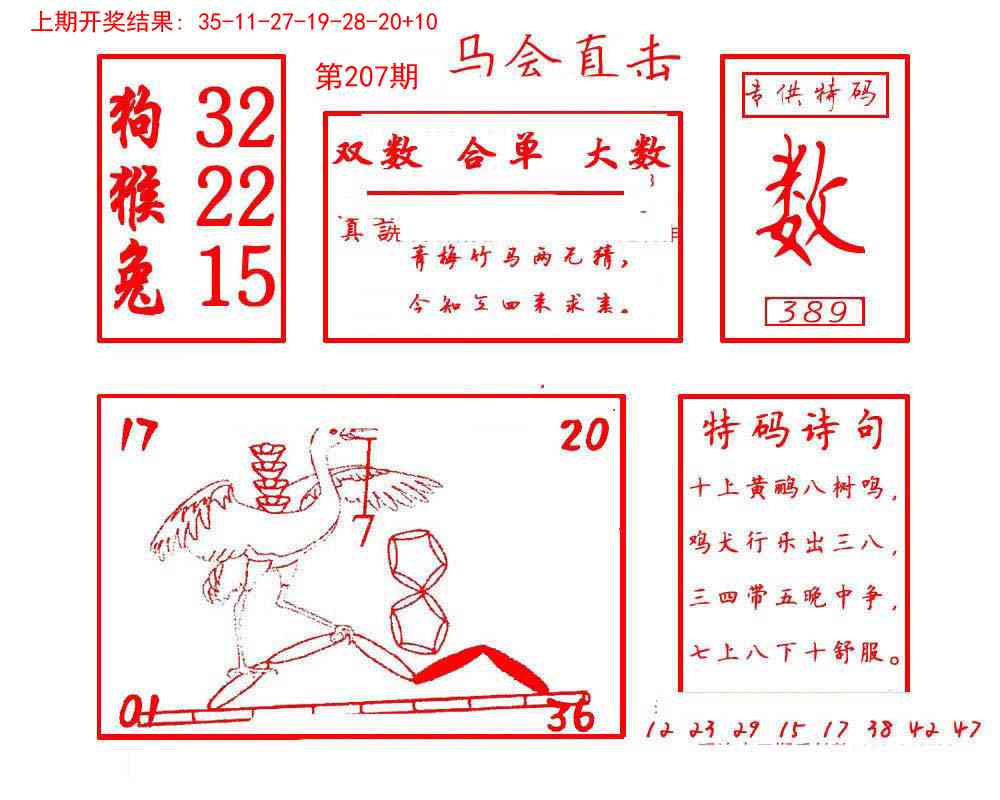 上期开奖结果: 35-11-27-19-28-20+10
第207期
马会直击
狗 32
猴 22
兔 15
双数 合单 大数
真
青梅竹马两无猜,
今知 四来求
专供特码
数
389
17
20
7
01
36
特码诗句
十上黄鹂八树鸣,
鸡犬行乐出三八,
三四带五晚中争,
七上八下十舒服。
12 23 29 15 17 38 42 47